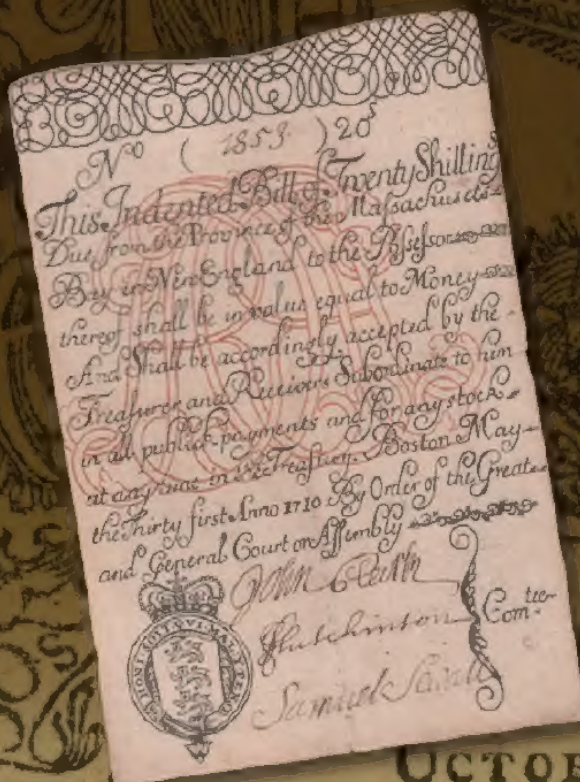 No ( 1853 ) 20s
This Indented Bill of Twenty Shillings
Due from the Province of the Massachusets
Bay in New England to the Possessor
thereof shall be in value equal to Money
And Shall be accordingly accepted by the
Treasurer and Receivers Subordinate to him
in all publick payments and for any stock
at any time in the Treasury. Boston May
the Thirty first Anno 1710 By Order of the Great
and General Court or Assembly
John
Hutchinson
Com:tee
Samuel Sewall
HONI SOIT QVI MAL Y PENS
OCTOB